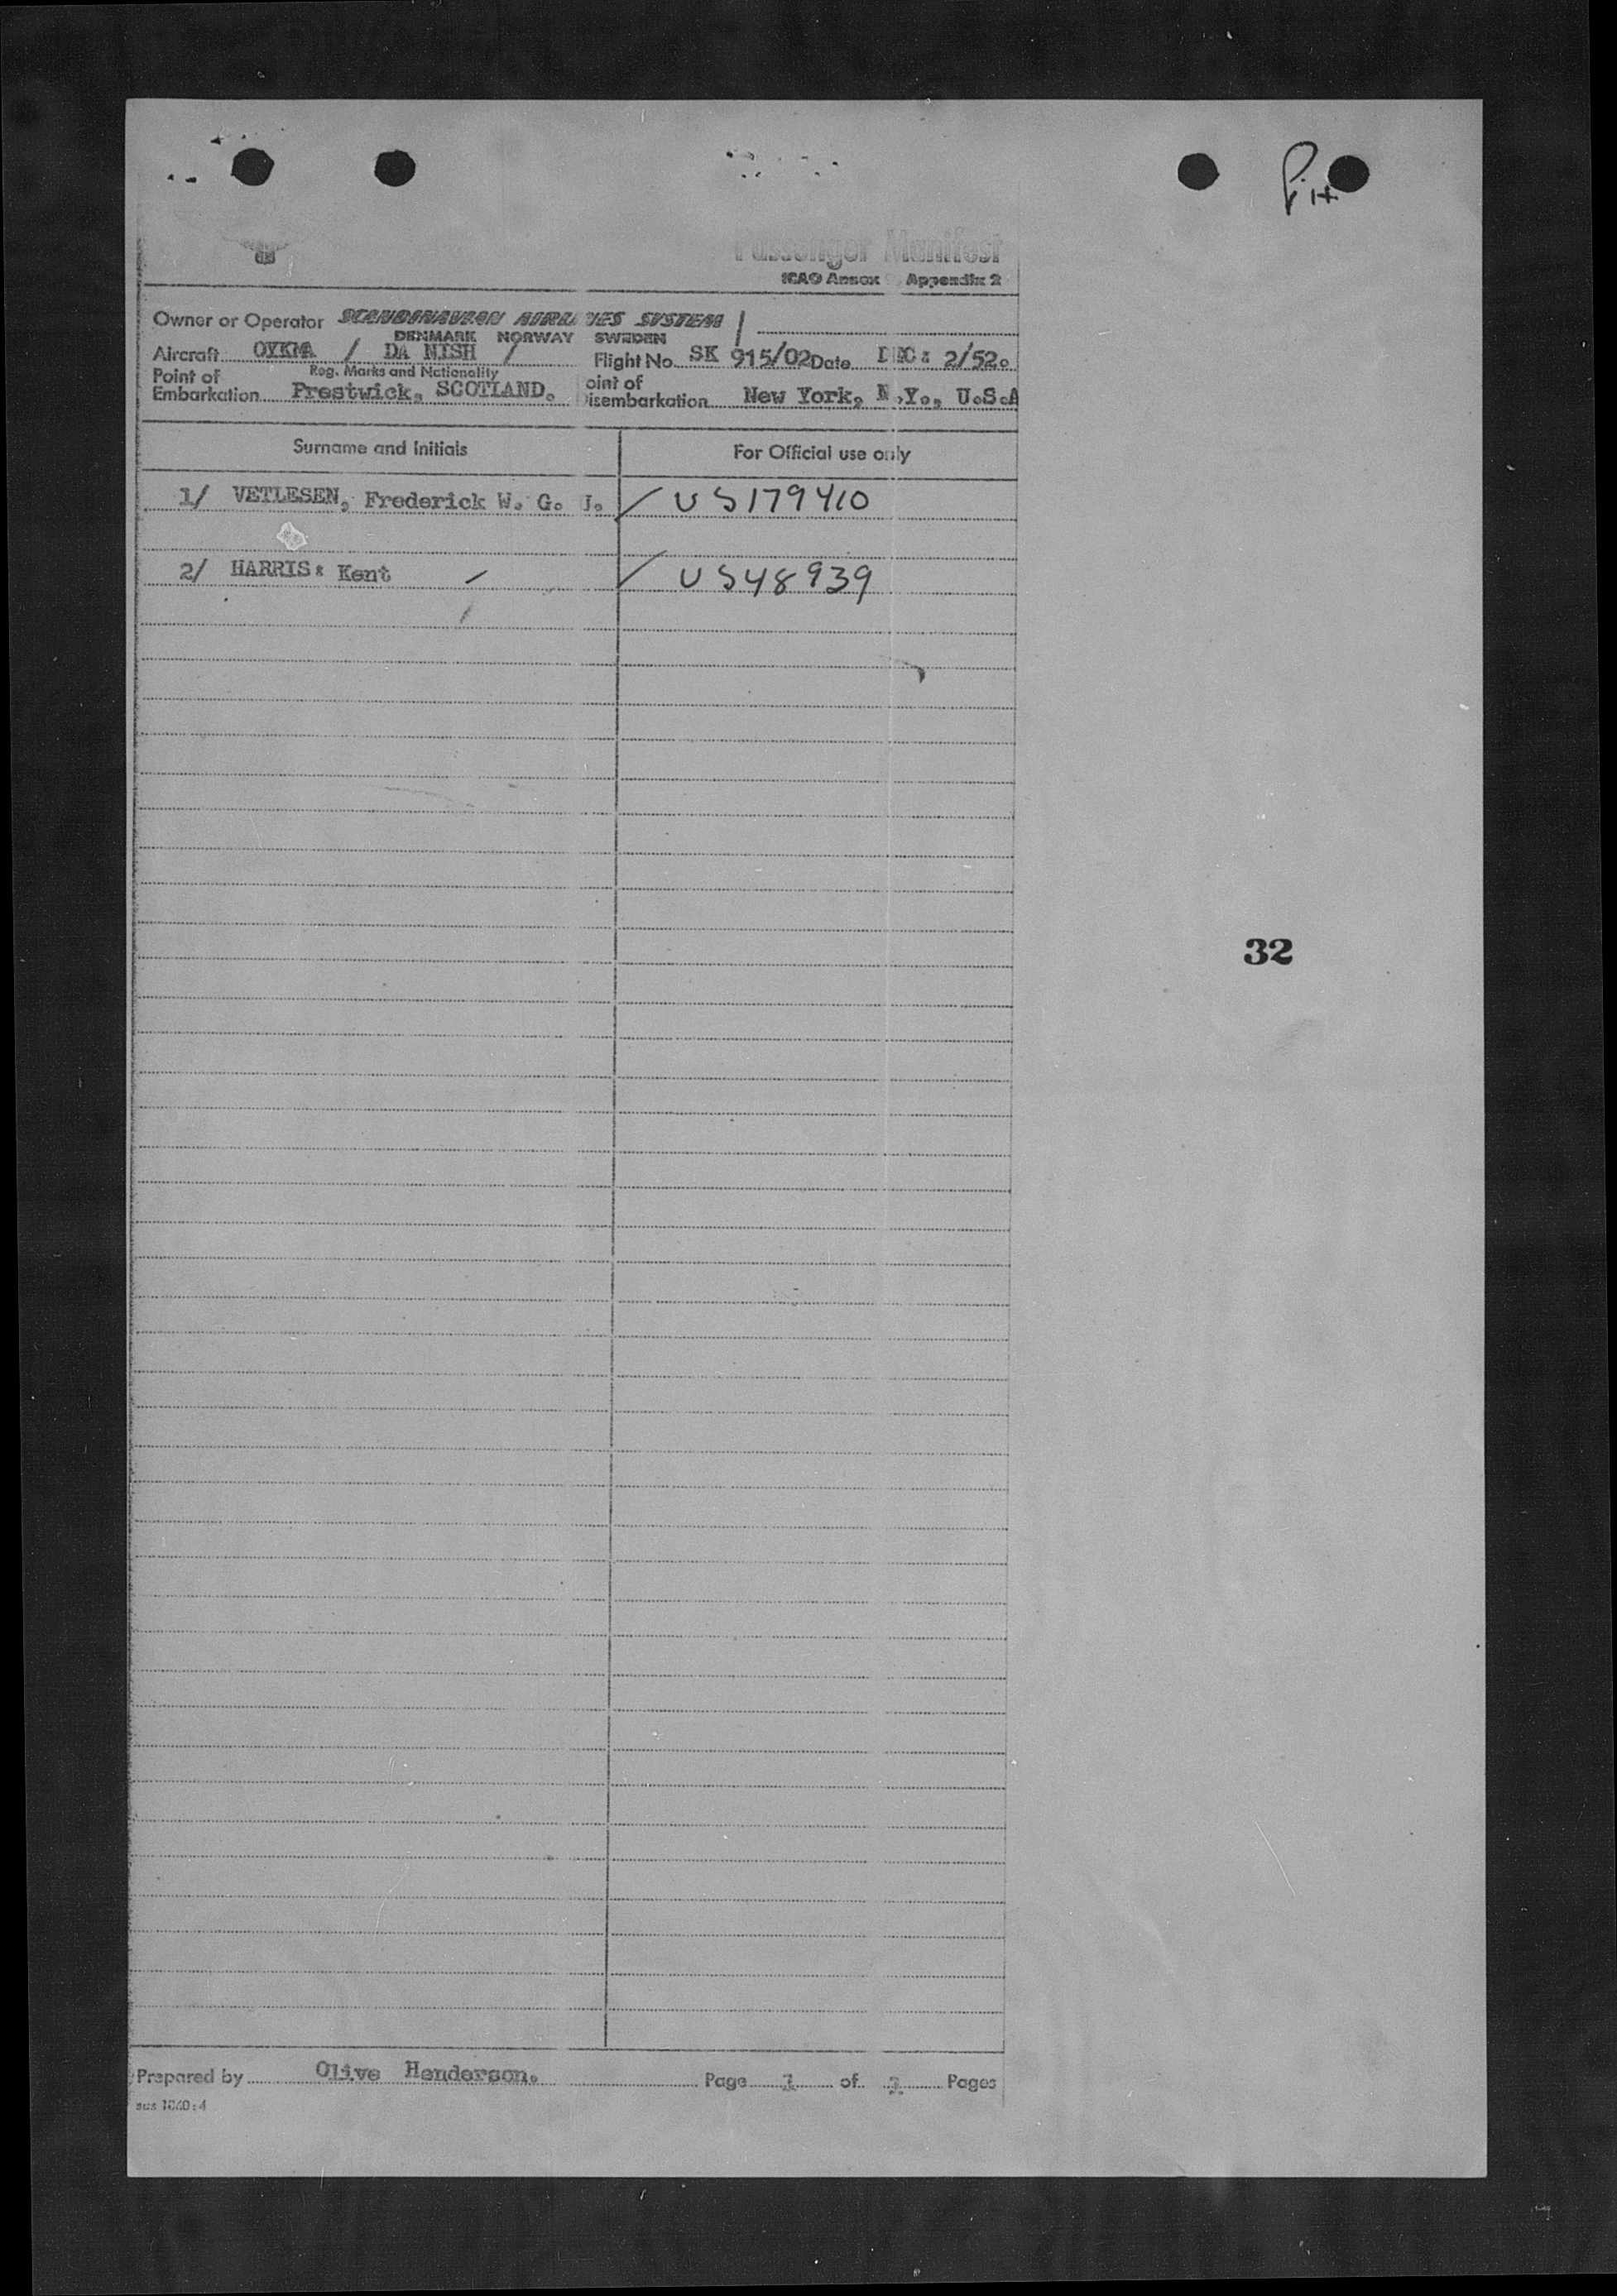 Pit
Passenger Manifest
ICAO Annex Appendix 2
Owner or Operator SCANDINAVIAN AIRLINES SYSTEM /
DENMARK NORWAY SWEDEN
Aircraft OYKMA / DA NISH / Flight No. SK 915/02 Date DEC: 2/52.
Reg. Marks and Nationality
Point of Embarkation Prestwick, SCOTLAND. oint of isembarkation New York, N.Y., U.S.A
Surname and Initials For Official use only
1/ VETLESEN, Frederick W. G. J. / US179410
2/ HARRIS: Kent / / US48939
32
Prepared by Olive Henderson. Page 1 of Pages